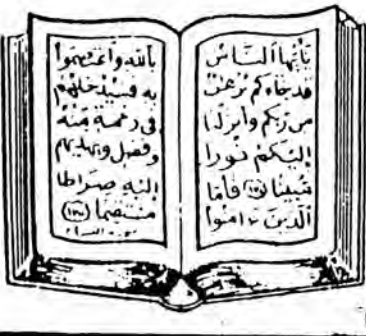 يَٰأَيُّهَا ٱلنَّاسُ
قَدْ جَاءَكُم بُرْهَٰنٌ
مِن رَبِّكُمْ وَأَنزَلْنَا
إِلَيْكُمْ نُورًا
مُّبِينًا (١٧٤) فَأَمَّا
ٱلَّذِينَ ءَامَنُوا
بِٱللَّهِ وَٱعْتَصَمُوا
بِهِ فَسَيُدْخِلُهُمْ
فِى رَحْمَةٍ مِّنْهُ
وَفَضْلٍ وَيَهْدِيهِمْ
إِلَيْهِ صِرَٰطًا
مُّسْتَقِيمًا (١٧٥)
سورة النساء